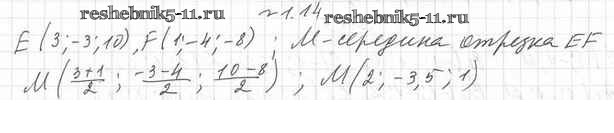 reshebnik5-11.ru
№1.14
reshebnik5-11.ru
E(3;-3;10), F(1;-4;-8) ; M-середина отрезка EF
M(3+1/2 ; -3-4/2 ; 10-8/2) ; M(2; -3,5; 1)